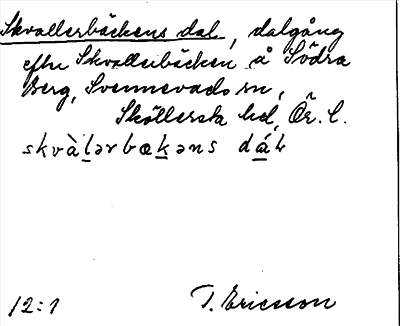 Skvallerbäckens dal, dalgång
efter Skvallerbäcken å Södra
Berg, Svennevads sn,
Sköllersta hd, Ör. l.
skvàlərbækəns dáɫ
12:1 T. Ericsson